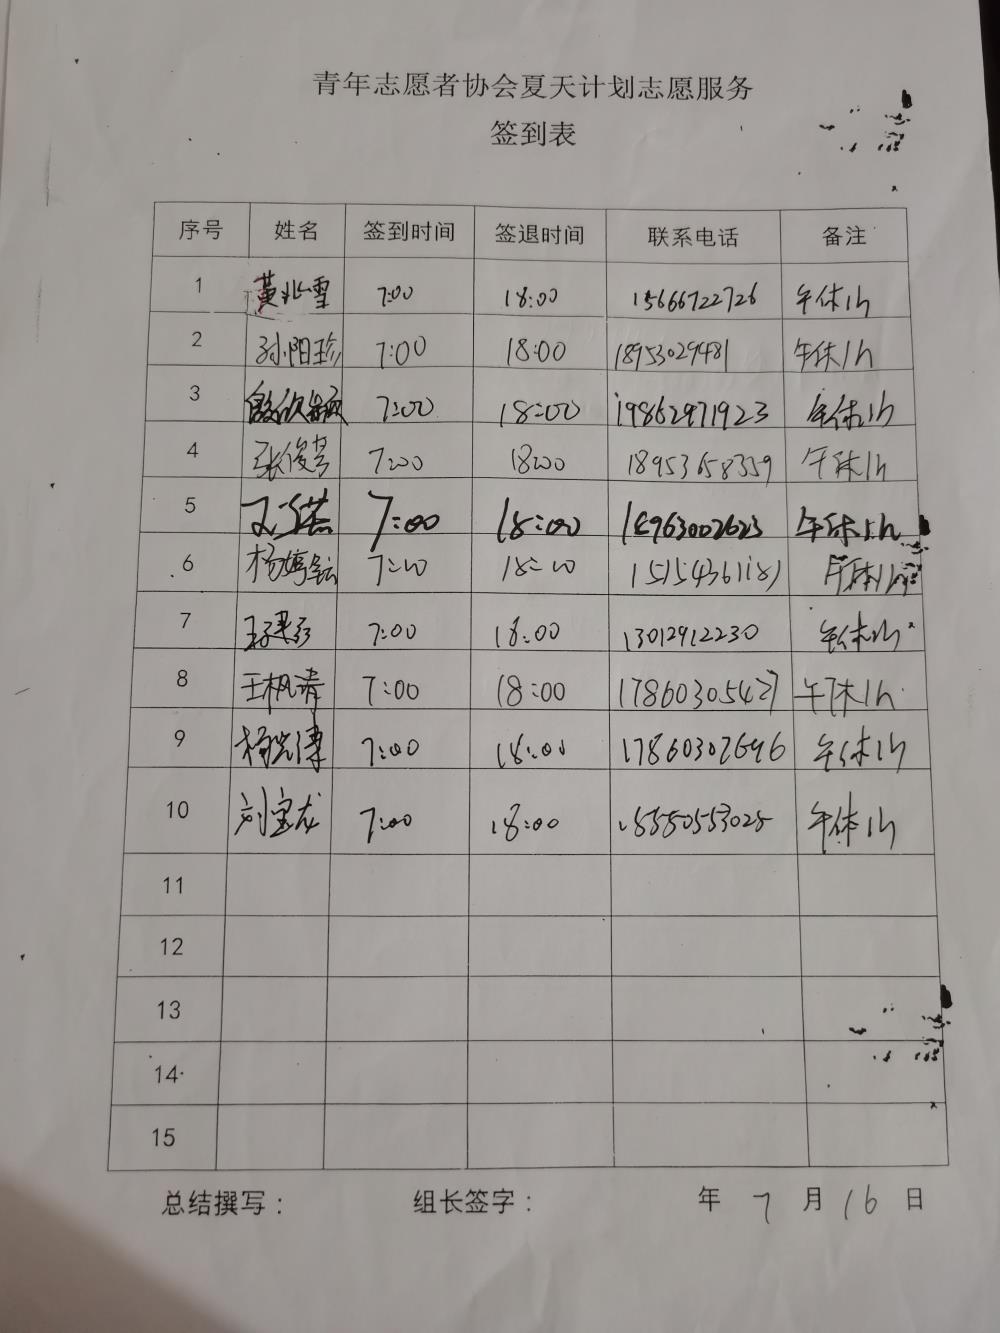 青年志愿者协会夏天计划志愿服务
签到表
序号 姓名 签到时间 签退时间 联系电话 备注
1 黄兆雪 7:00 18:00 15666722726 午休1h
2 孙阳珍 7:00 18:00 18953029481 午休1h
3 7:00 18:00 19862971923 午休1h
4 张俊 7:00 18:00 18953658359 午休1h
5 7:00 18:00 午休1h
6 杨婷 7:00 18:00 午休1h
7 7:00 18:00 13012912230 午休1h
8 王枫清 7:00 18:00 17860305427 午休1h
9 杨 7:00 18:00 17860302696 午休1h
10 刘宝龙 7:00 18:00 15550553025 午休1h
11
12
13
14
15
总结撰写： 组长签字： 年 7 月 16 日